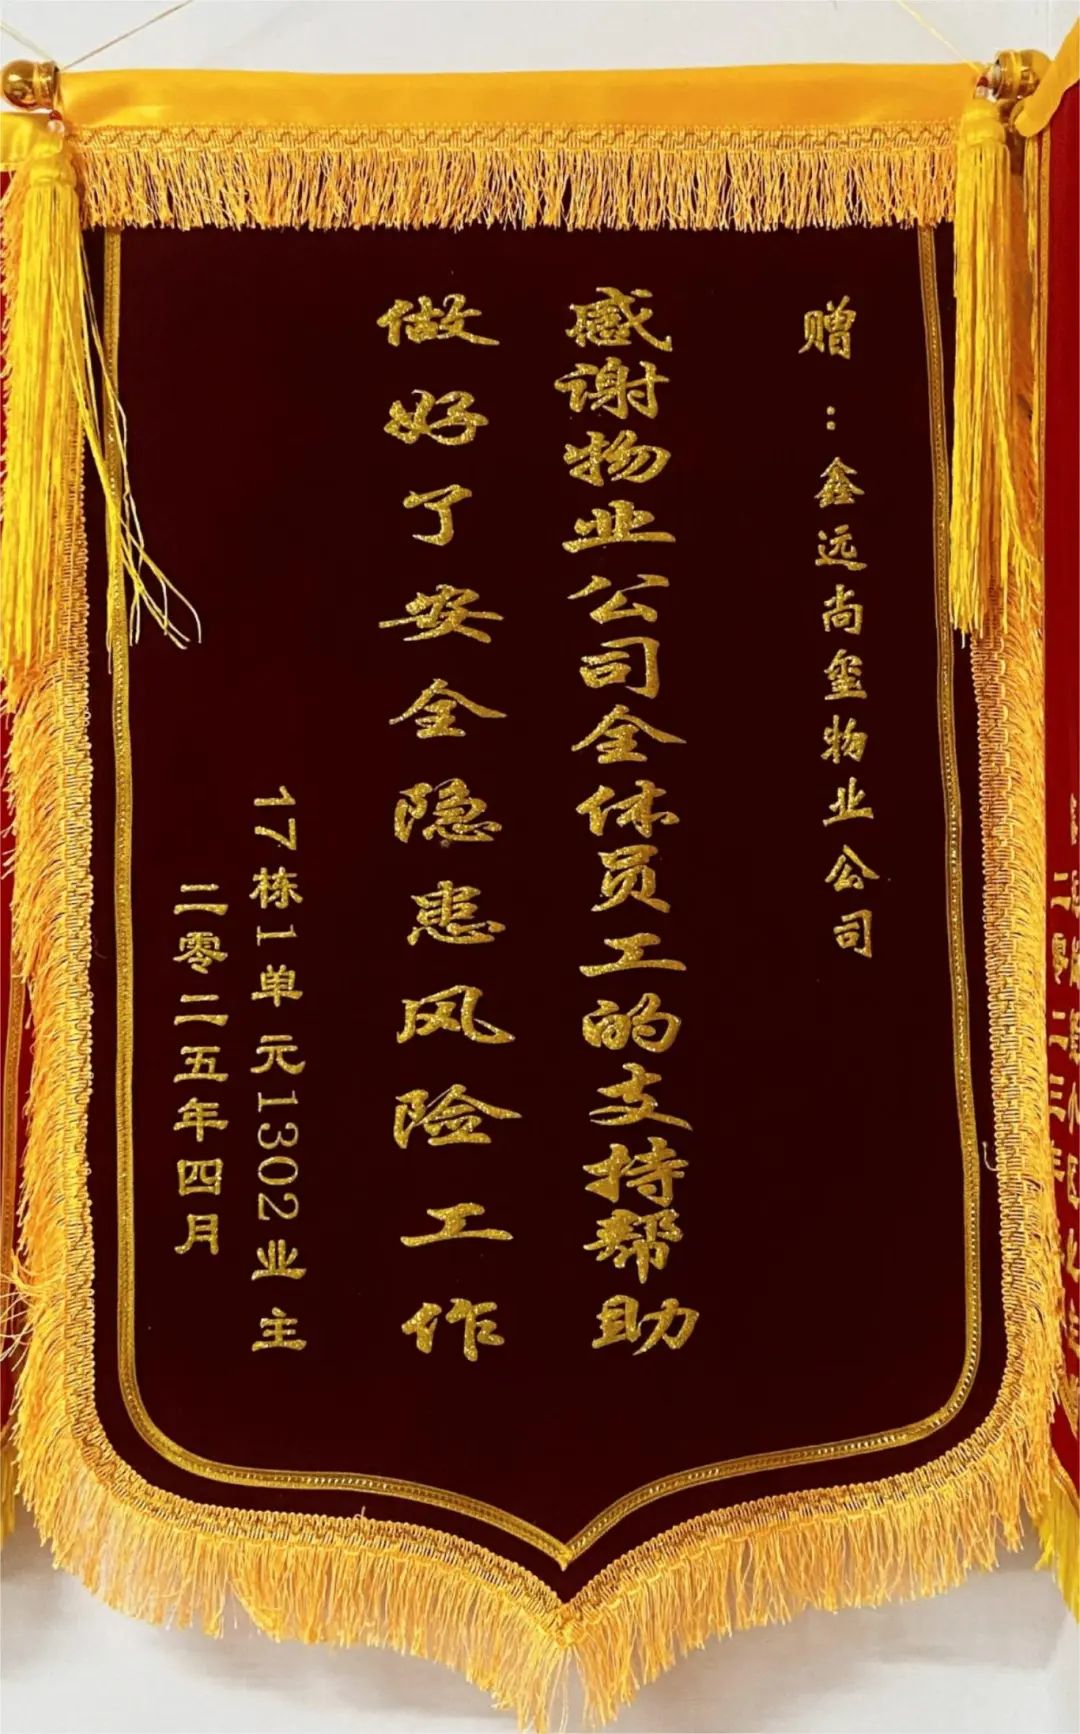 赠：鑫远尚玺物业公司
感谢物业公司全体员工的支持帮助
做好了安全隐患风险工作
17栋1单元1302业主
二零二五年四月
二零二三年